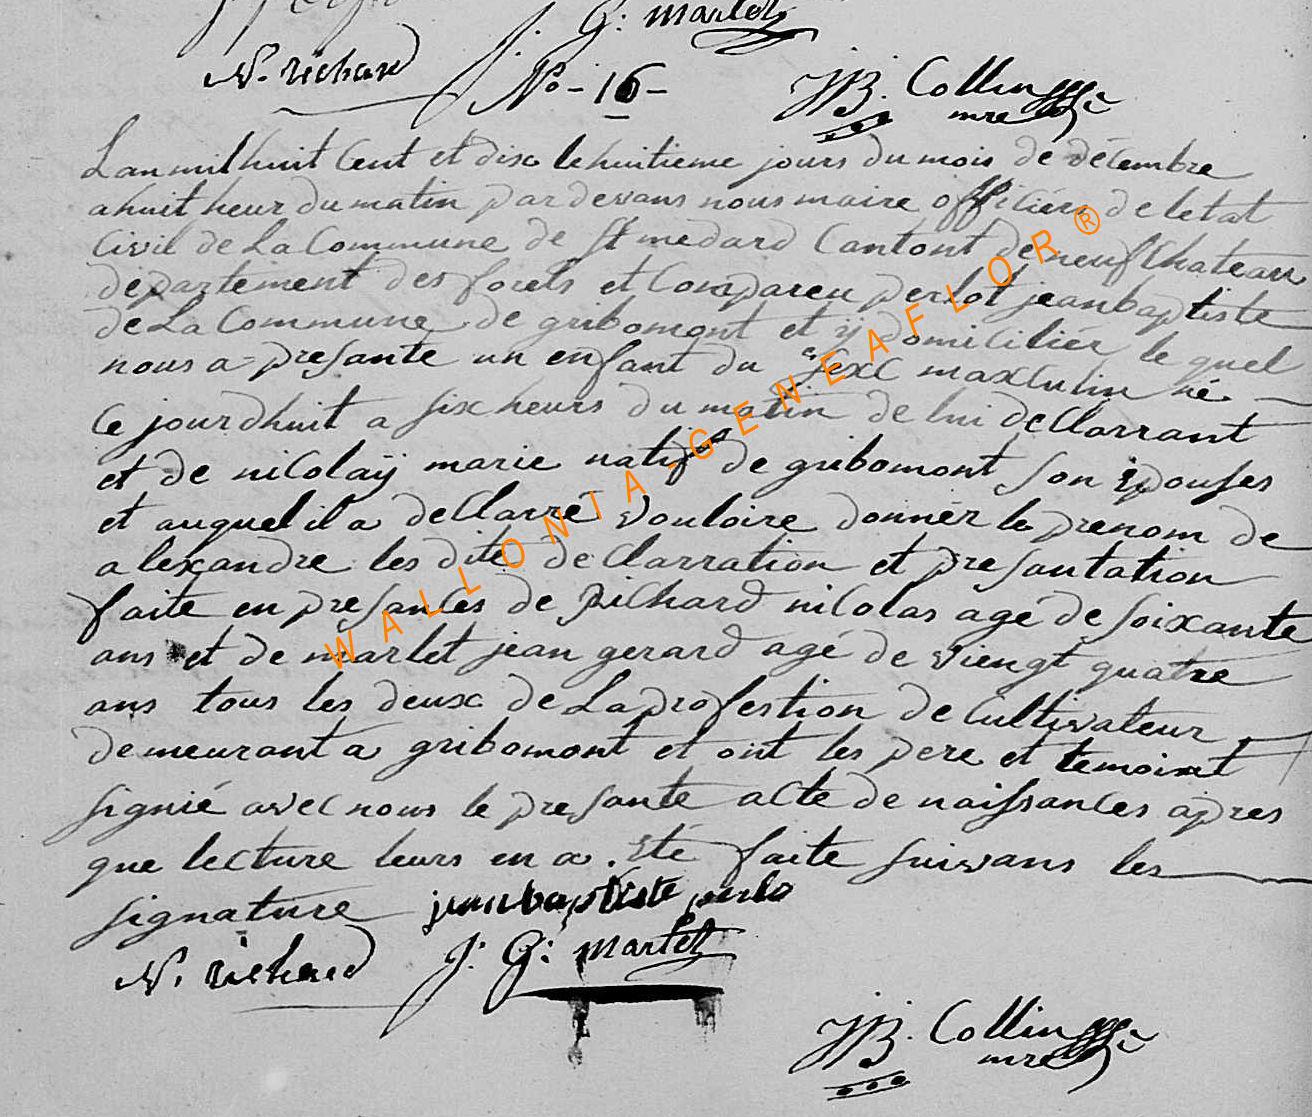 J. G. marlet
N. richard
No - 16 -
JB. Collin
mre
Lan mil huit Cent et dix le huitieme jours du mois de décembre
a huit heur du matin par devans nous maire officiére de letat
Civil de La Commune de St medard Cantont de neufchateau
département des forets et Compareu perlot jeanbaptiste
de La Commune de gribomont et ÿ domicilier le quel
nous a présante un enfant du sexe maxculin né
Ce jourdhuit a six heurs du matin de lui deClarrant
et de nicolaÿ marie natif de gribomont son epouses
et auquel il a deClarré vouloire donnér le prenom de
alexandre les dite deClarration et presantation
faite en presances de RiChard nicolas agé de soixante
ans et de marlet jean gerard agé de viengt quatre
ans tous les deux de La profestion de Cultivateur
demeurant a gribomont et ont les pere et temoint
signié avec nous le presante acte de naissances apres
que lecture leurs en a eté faite suivans les
signature jeanbaptiste perlo
N. richard J. G. marlet
JB. Collin
mre
WALLONIA-GENEAFLOR®